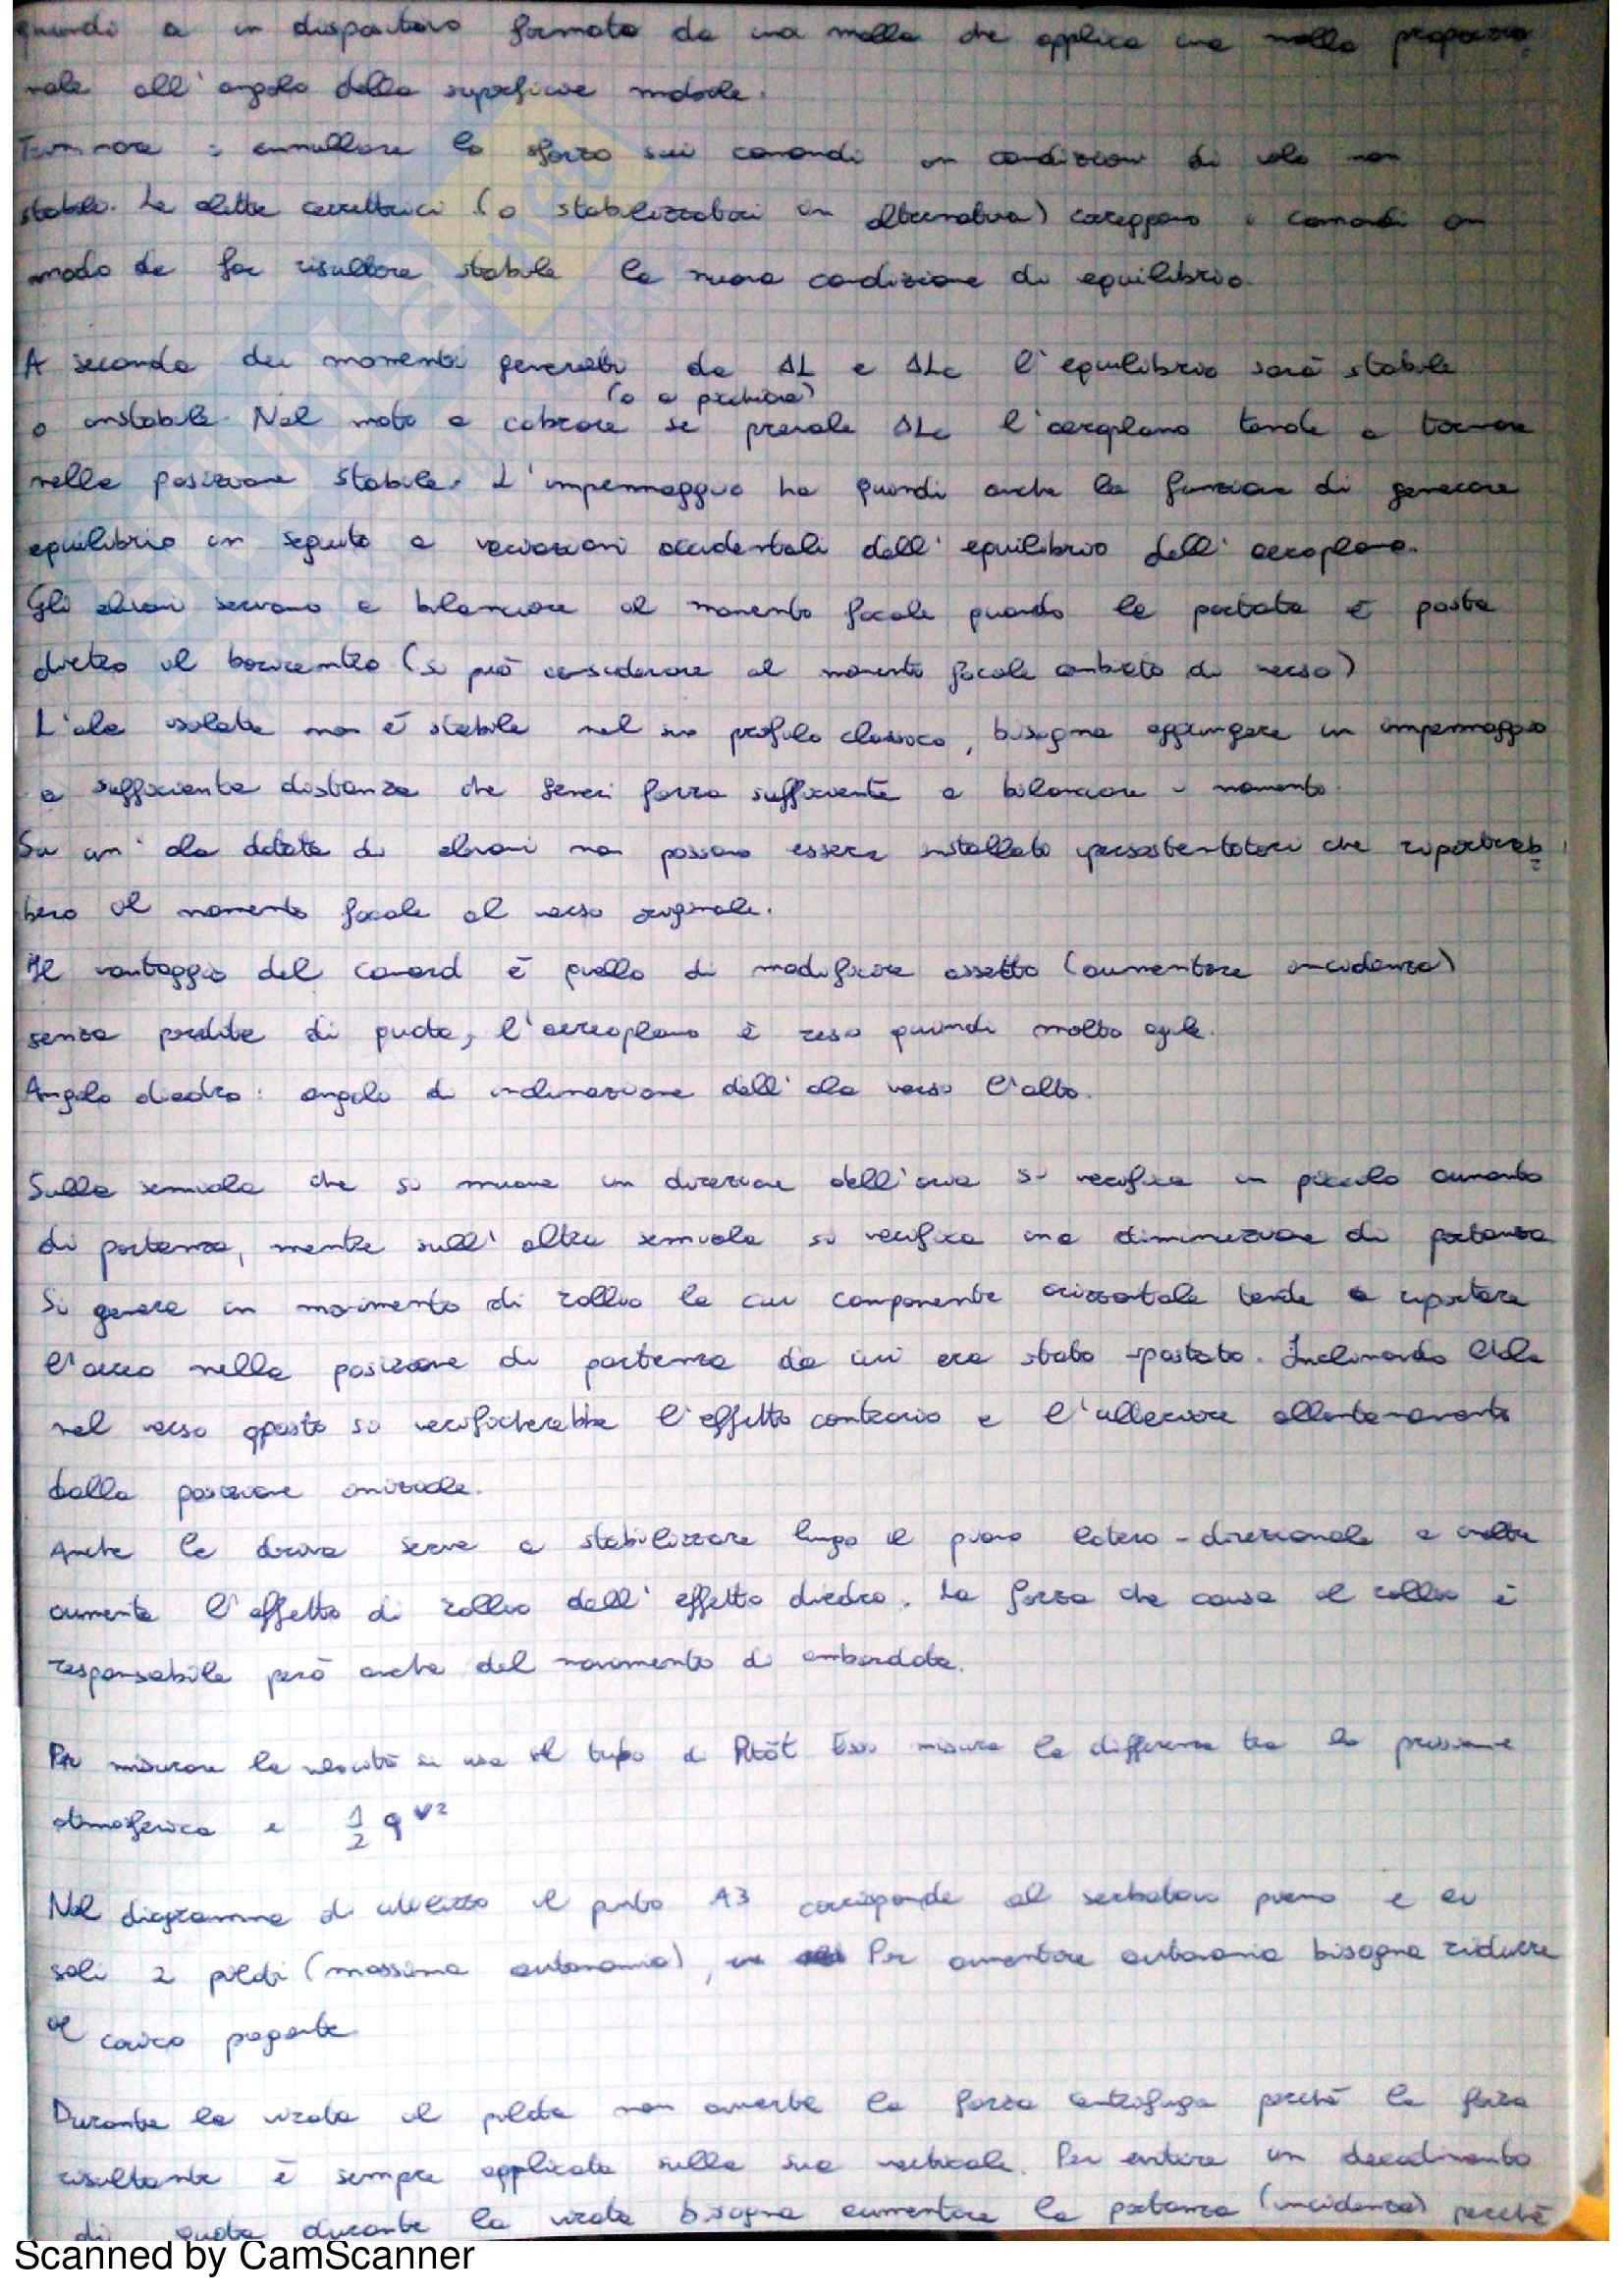 quindi a un dispositivo formato da una molla che applica una molla proporzio
nale all'angolo della superficie mobile.
Trimmare : annullare lo sforzo sui comandi in condizioni di volo non
stabile. Le alette correttrici (o stabilizzatori in alternativa) correggono i comandi in
modo da far risultare stabile la nuova condizione di equilibrio.
A seconda dei momenti generati da ΔL e ΔLc l'equilibrio sarà stabile
(o a picchiare)
o instabile. Nel moto a cabrare se prevale ΔLc l'aeroplano tende a tornare
nella posizione stabile. L'impennaggio ha quindi anche la funzione di generare
equilibrio in seguito a variazioni accidentali dell'equilibrio dell'aeroplano.
Gli elevoni servono a bilanciare il momento focale quando la portata è posta
dietro il baricentro (si può considerare il momento focale cambiato di verso)
L'ala isolata non è stabile nel suo profilo classico, bisogna aggiungere un impennaggio
a sufficiente distanza che generi forza sufficiente a bilanciare i momento.
Su un'ala dotata di elevoni non possono essere installato ipersostentatori che riporterеb
bero il momento focale al verso originale.
Il vantaggio del canard è quello di modificare assetto (aumentare incidenza)
senza perdite di quota, l'aereoplano è reso quindi molto agile.
Angolo diedro : angolo di inclinazione dell'ala verso l'alto.
Sulla semiala che si muove in direzione dell'aria si verifica un piccolo aumento
di portanza, mentre sull'altra semiala si verifica una diminuzione di portanza
Si genera un movimento di rollio la cui componente orizzontale tende a riportare
l'aereo nella posizione di partenza da cui era stato spostato. Inclinando l'ala
nel verso opposto si verificherebbe l'effetto contrario e l'ulteriore allontanamento
dalla posizione iniziale.
Anche la deriva serve a stabilizzare lungo il piano latero-direzionale e inoltre
aumenta l'effetto di rollio dell'effetto diedro. La forza che causa il rollio è
responsabile però anche del movimento di imbardata.
Per misurare la velocità si usa il tubo di Pitôt Esso misura la differenza tra la pressione
atmosferica e 1/2 ρ v²
Nel diagramma di utilizzo il punto A3 corrisponde al serbatoio pieno e ai
soli 2 piloti (massima autonomia), Per aumentare autonomia bisogna ridurre
il carico pagante
Durante la virata il pilota non avverte la forza centrifuga perché la forza
risultante è sempre applicata sulla sua verticale. Per evitare un decadimento
di quota durante la virata bisogna aumentare la portanza (incidenza) perché
Scanned by CamScanner